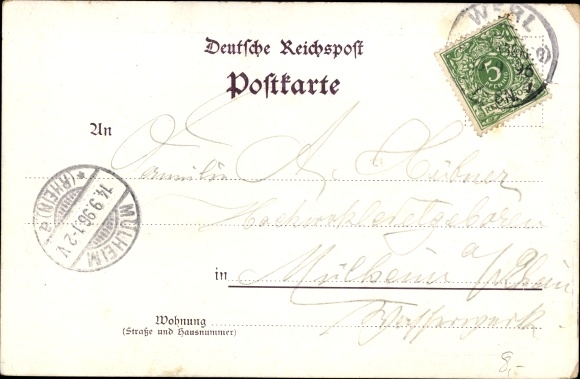 Deutsche Reichspost
Postkarte
WERL
96
5
REICHSPOST
An
Familie A. Hübner
MÜLHEIM
(RHEIN) a
14.9.96.1-2 V.
in Mülheim a/Rhein
Wohnung
(Straße und Hausnummer)
Wasserwerk
8,-